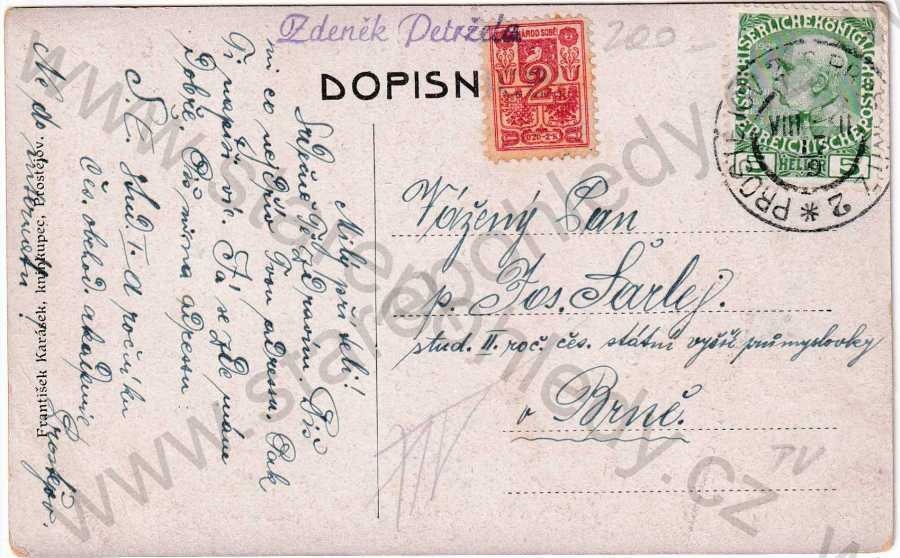 Zdeněk Petržela
200-
DOPISN
NÁRODO SOBĚ
2
SERLICHEKÖNIGL
REICHISCHE
HELLER
5
PROS
2
VIII
Milý příteli!
Srdečně Tě zdravím. Piš
mi co nejdřív Tvou adresu. Pak
Ti napíši víc. Já se zde mám
Dobře. Piš mi na adresu
Z. P. stud. I. A ročníku
čes. obchod. akademie
Prostějov.
Na do
Vážený Pan
p. Jos. Šarlej.
stud. II. roč. čes. státní vyšší průmyslovky
v Brně.
PV
František Karásek, knihkupec, Prostějov.
www.starepohledy.cz